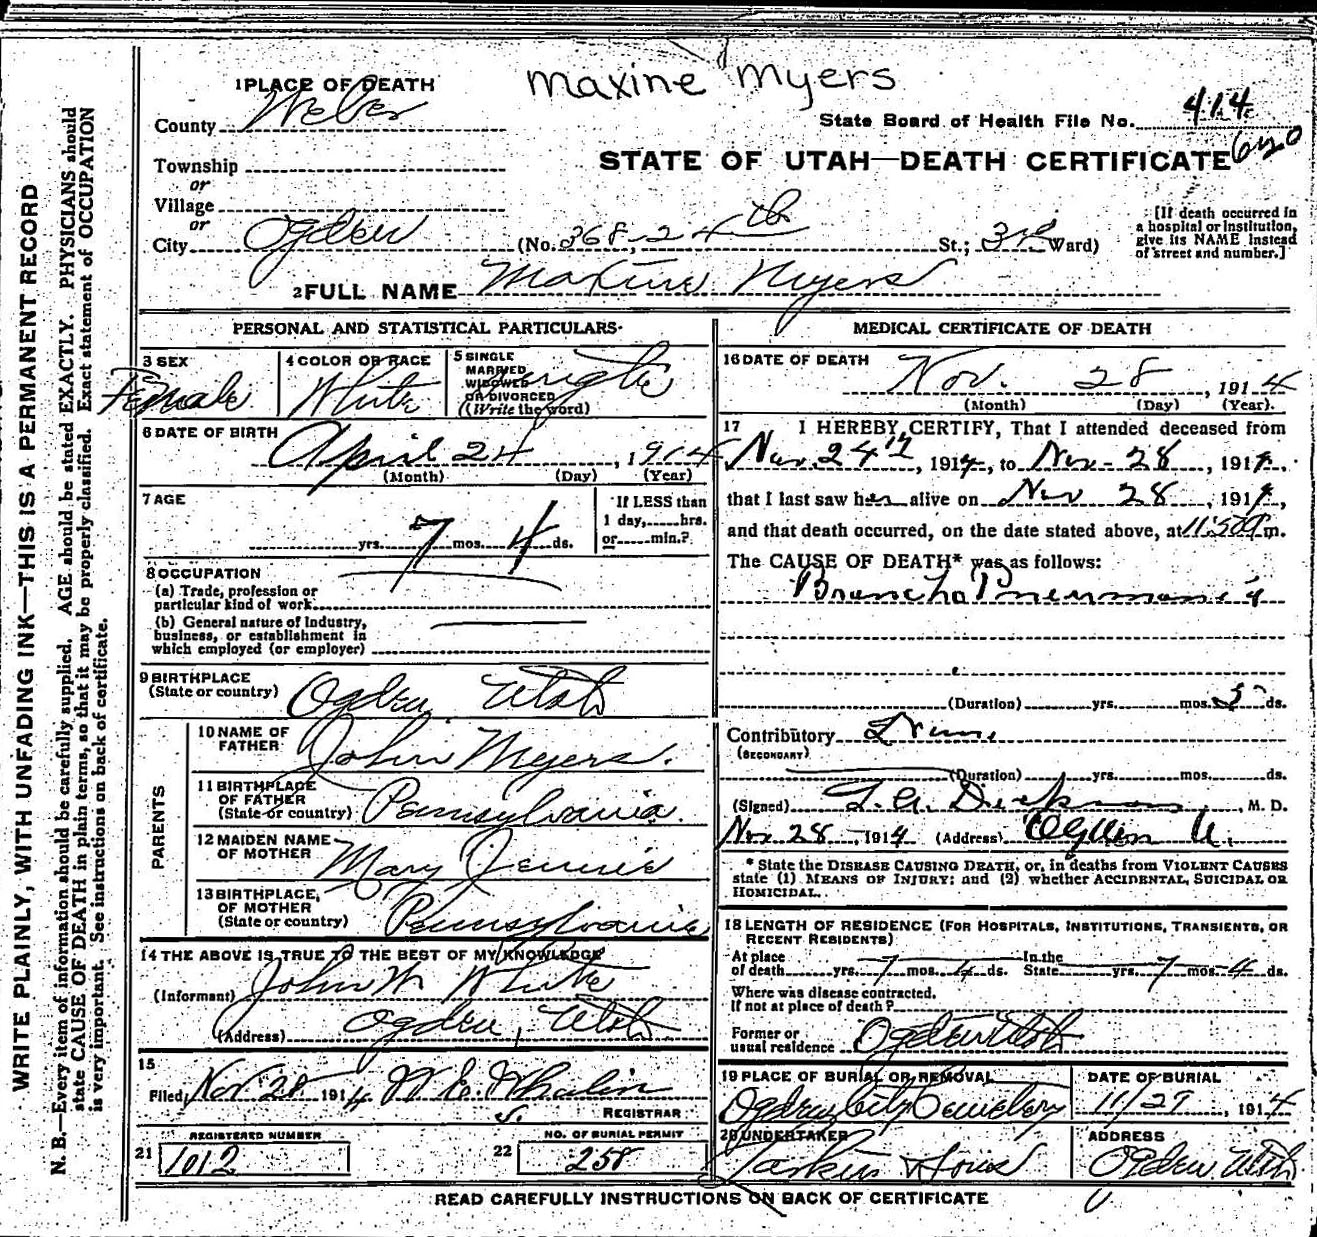 Maxine Myers
1 PLACE OF DEATH
County Weber
State Board of Health File No. 414
620
STATE OF UTAH—DEATH CERTIFICATE
Township
or
Village
or
City Ogden (No. 368-24th St.; 3rd Ward)
[If death occurred in
a hospital or institution,
give its NAME instead
of street and number.]
2 FULL NAME Maxine Myers
PERSONAL AND STATISTICAL PARTICULARS
3 SEX
Female
4 COLOR OR RACE
White
5 SINGLE
MARRIED
WIDOWED
OR DIVORCED
(Write the word)
Single
6 DATE OF BIRTH
April 24, 1914
(Month) (Day) (Year)
7 AGE
yrs. 7 mos. 4 ds.
If LESS than
1 day, hrs.
or min.?
8 OCCUPATION
(a) Trade, profession or
particular kind of work
(b) General nature of Industry,
business, or establishment in
which employed (or employer)
9 BIRTHPLACE
(State or country) Ogden Utah
PARENTS
10 NAME OF
FATHER John Myers.
11 BIRTHPLACE
OF FATHER
(State or country) Pennsylvania.
12 MAIDEN NAME
OF MOTHER Mary Jennie
13 BIRTHPLACE
OF MOTHER
(State or country) Pennsylvania
14 THE ABOVE IS TRUE TO THE BEST OF MY KNOWLEDGE
(Informant) John M White
(Address) Ogden, Utah
15
Filed, Nov 28 1914 W E. Whalin
REGISTRAR
REGISTERED NUMBER
21 1012
NO. OF BURIAL PERMIT
22 258
MEDICAL CERTIFICATE OF DEATH
16 DATE OF DEATH
Nov. 28, 1914
(Month) (Day) (Year).
17 I HEREBY CERTIFY, That I attended deceased from
Nov. 24th, 1914, to Nov-28, 1914,
that I last saw her alive on Nov 28, 1914,
and that death occurred, on the date stated above, at m.
The CAUSE OF DEATH* was as follows:
Broncho Pneumonia
(Duration) yrs. mos. 5 ds.
Contributory
(SECONDARY)
(Duration) yrs. mos. ds.
(Signed) M. D.
Nov 28, 1914 (Address) Ogden U.
* State the DISEASE CAUSING DEATH, or, in deaths from VIOLENT CAUSES
state (1) MEANS OF INJURY; and (2) whether ACCIDENTAL, SUICIDAL OR
HOMICIDAL.
18 LENGTH OF RESIDENCE (FOR HOSPITALS, INSTITUTIONS, TRANSIENTS, OR
RECENT RESIDENTS)
At place
of death yrs. 7 mos. 4 ds. In the
State yrs. 7 mos. 4 ds.
Where was disease contracted,
If not at place of death?
Former or
usual residence Ogden Utah
19 PLACE OF BURIAL OR REMOVAL
Ogden City Cemetery
DATE OF BURIAL
11/29, 1914
20 UNDERTAKER
ADDRESS
Ogden Utah
READ CAREFULLY INSTRUCTIONS ON BACK OF CERTIFICATE
WRITE PLAINLY, WITH UNFADING INK—THIS IS A PERMANENT RECORD
N. B.—Every item of information should be carefully supplied. AGE should be stated EXACTLY. PHYSICIANS should
state CAUSE OF DEATH in plain terms, so that it may be properly classified. Exact statement of OCCUPATION
is very important. See instructions on back of certificate.